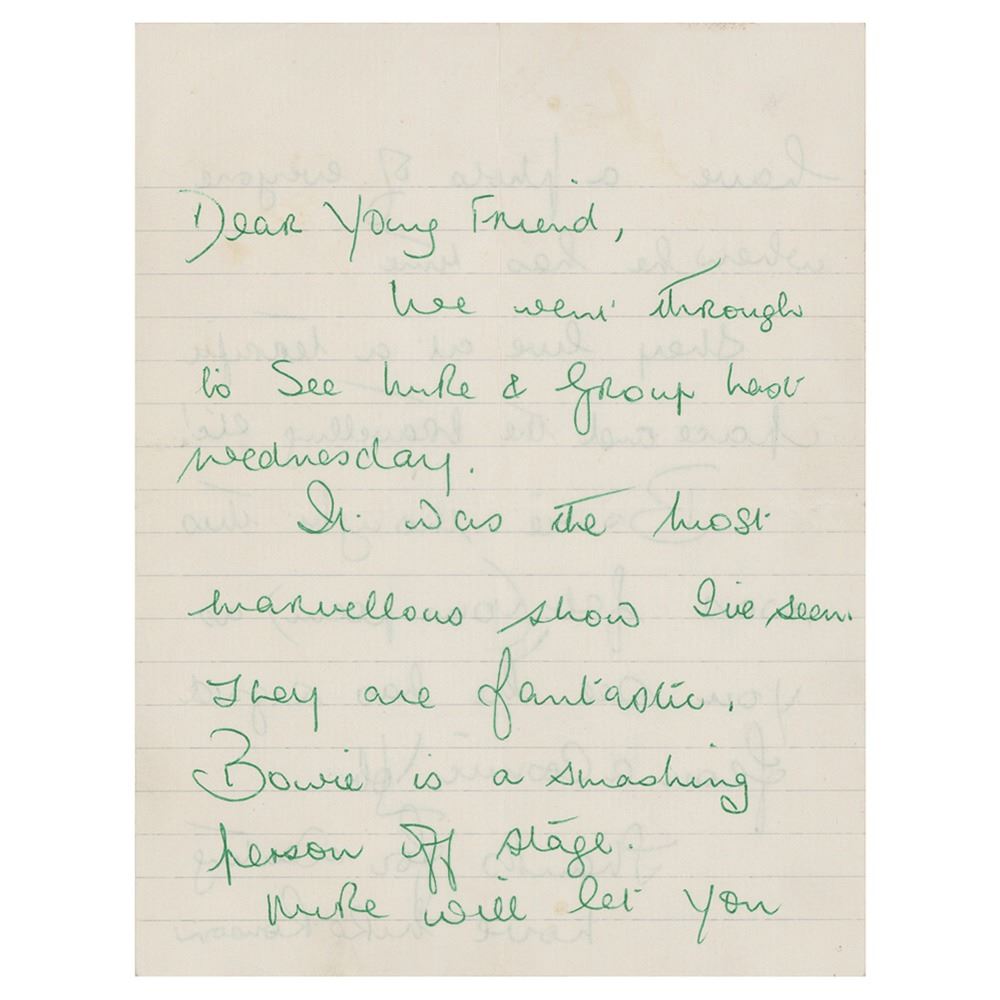 Dear Young Friend,
We went through
to See Mike & Group last
Wednesday.
It was the most
marvellous show I've seen.
They are fantastic.
Bowie is a smashing
person off stage.
Mike will let you